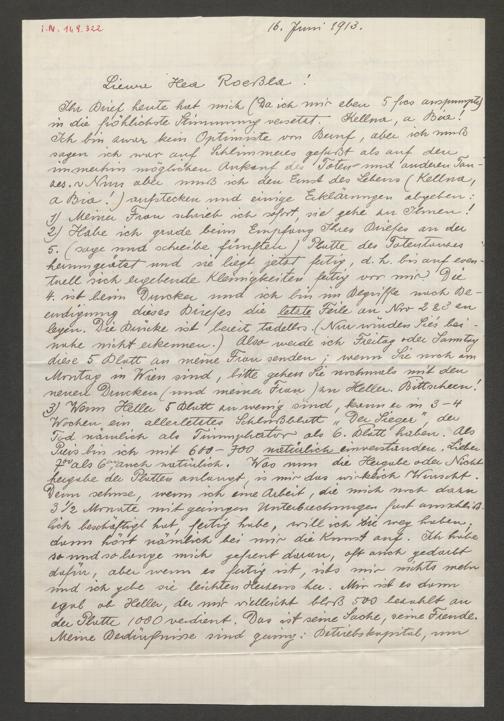 I.N. 149.322
16. Juni 1913.
Lieber Herr Roeßler!
Ihr Brief heute hat mich (Da ich mir eben 5 frcs auspumpte)
in die fröhlichste Stimmung versetzt. Kellna, a Bia!
Ich bin zwar kein Optimiste von Beruf, aber ich muß
sagen ich war auf Schlimmeres gefaßt als auf den
immerhin möglichen Ankauf des Toten- und anderen Tan-
zes. Nun aber muß ich den Ernst des Lebens (Kellna,
a Bia!) aufstecken und einige Erklärungen abgeben:
1) Meiner Frau schrieb ich sofort, sie gehe zu Ihnen!
2) Habe ich grade beim Empfang Ihres Briefes an der
5. (sage und schreibe fünften) Platte des Totentanzes
herumgeätzt und sie liegt jetzt fertig, d. h. bis auf even-
tuell sich ergebende Kleinigkeiten fertig vor mir. Die
4. ist beim Drucken und ich bin im Begriffe nach Be-
endigung dieses Briefes die letzte Feile an Nro 2 & 3 an
legen. Die Drucke ist bereit tadellos. (Nun würden Sie's bei-
nahe nicht erkennen.) Also werde ich Freitag oder Samstag
diese 5 Blatt an meine Frau senden; wenn Sie noch am
Montag in Wien sind, bitte gehen Sie nochmals mit den
neuen Drucken (und meiner Frau) zu Heller. Bittscheen!
3) Wenn Heller 5 Blatt zu wenig sind, kann er in 3-4
Wochen ein allerletztes Schlußblatt „Der Sieger", der
Tod nämlich als Triumphator als 6. Blatt haben. Als
Preis bin ich mit 600 - 700 natürlich einverstanden. Lieber
700 als 6- auch natürlich. Was nun die Hergabe oder Nicht-
hergabe der Platten anlangt, is mir das wirklich Wurscht.
Denn sehnse, wenn ich eine Arbeit, die mich noch dazu
3 1/2 Monate mit geringen Unterbrechungen fast ausschließ-
lich beschäftigt hat, fertig habe, will ich sie weg haben,
dann hört nämlich bei mir die Kunst auf. Ich habe
so und so lange mich gefreut daran, oft auch gedarbt
dafür, aber wenn es fertig ist, ists mir nichts mehr
und ich gebe sie leichten Herzens her. Mir ist es dann
egal ob Heller, der mir vielleicht bloß 500 bezahlt an
der Platte 1000 verdient. Das ist seine Sache, seine Freude.
Meine Bedürfnisse sind gering: Betriebskapital, um